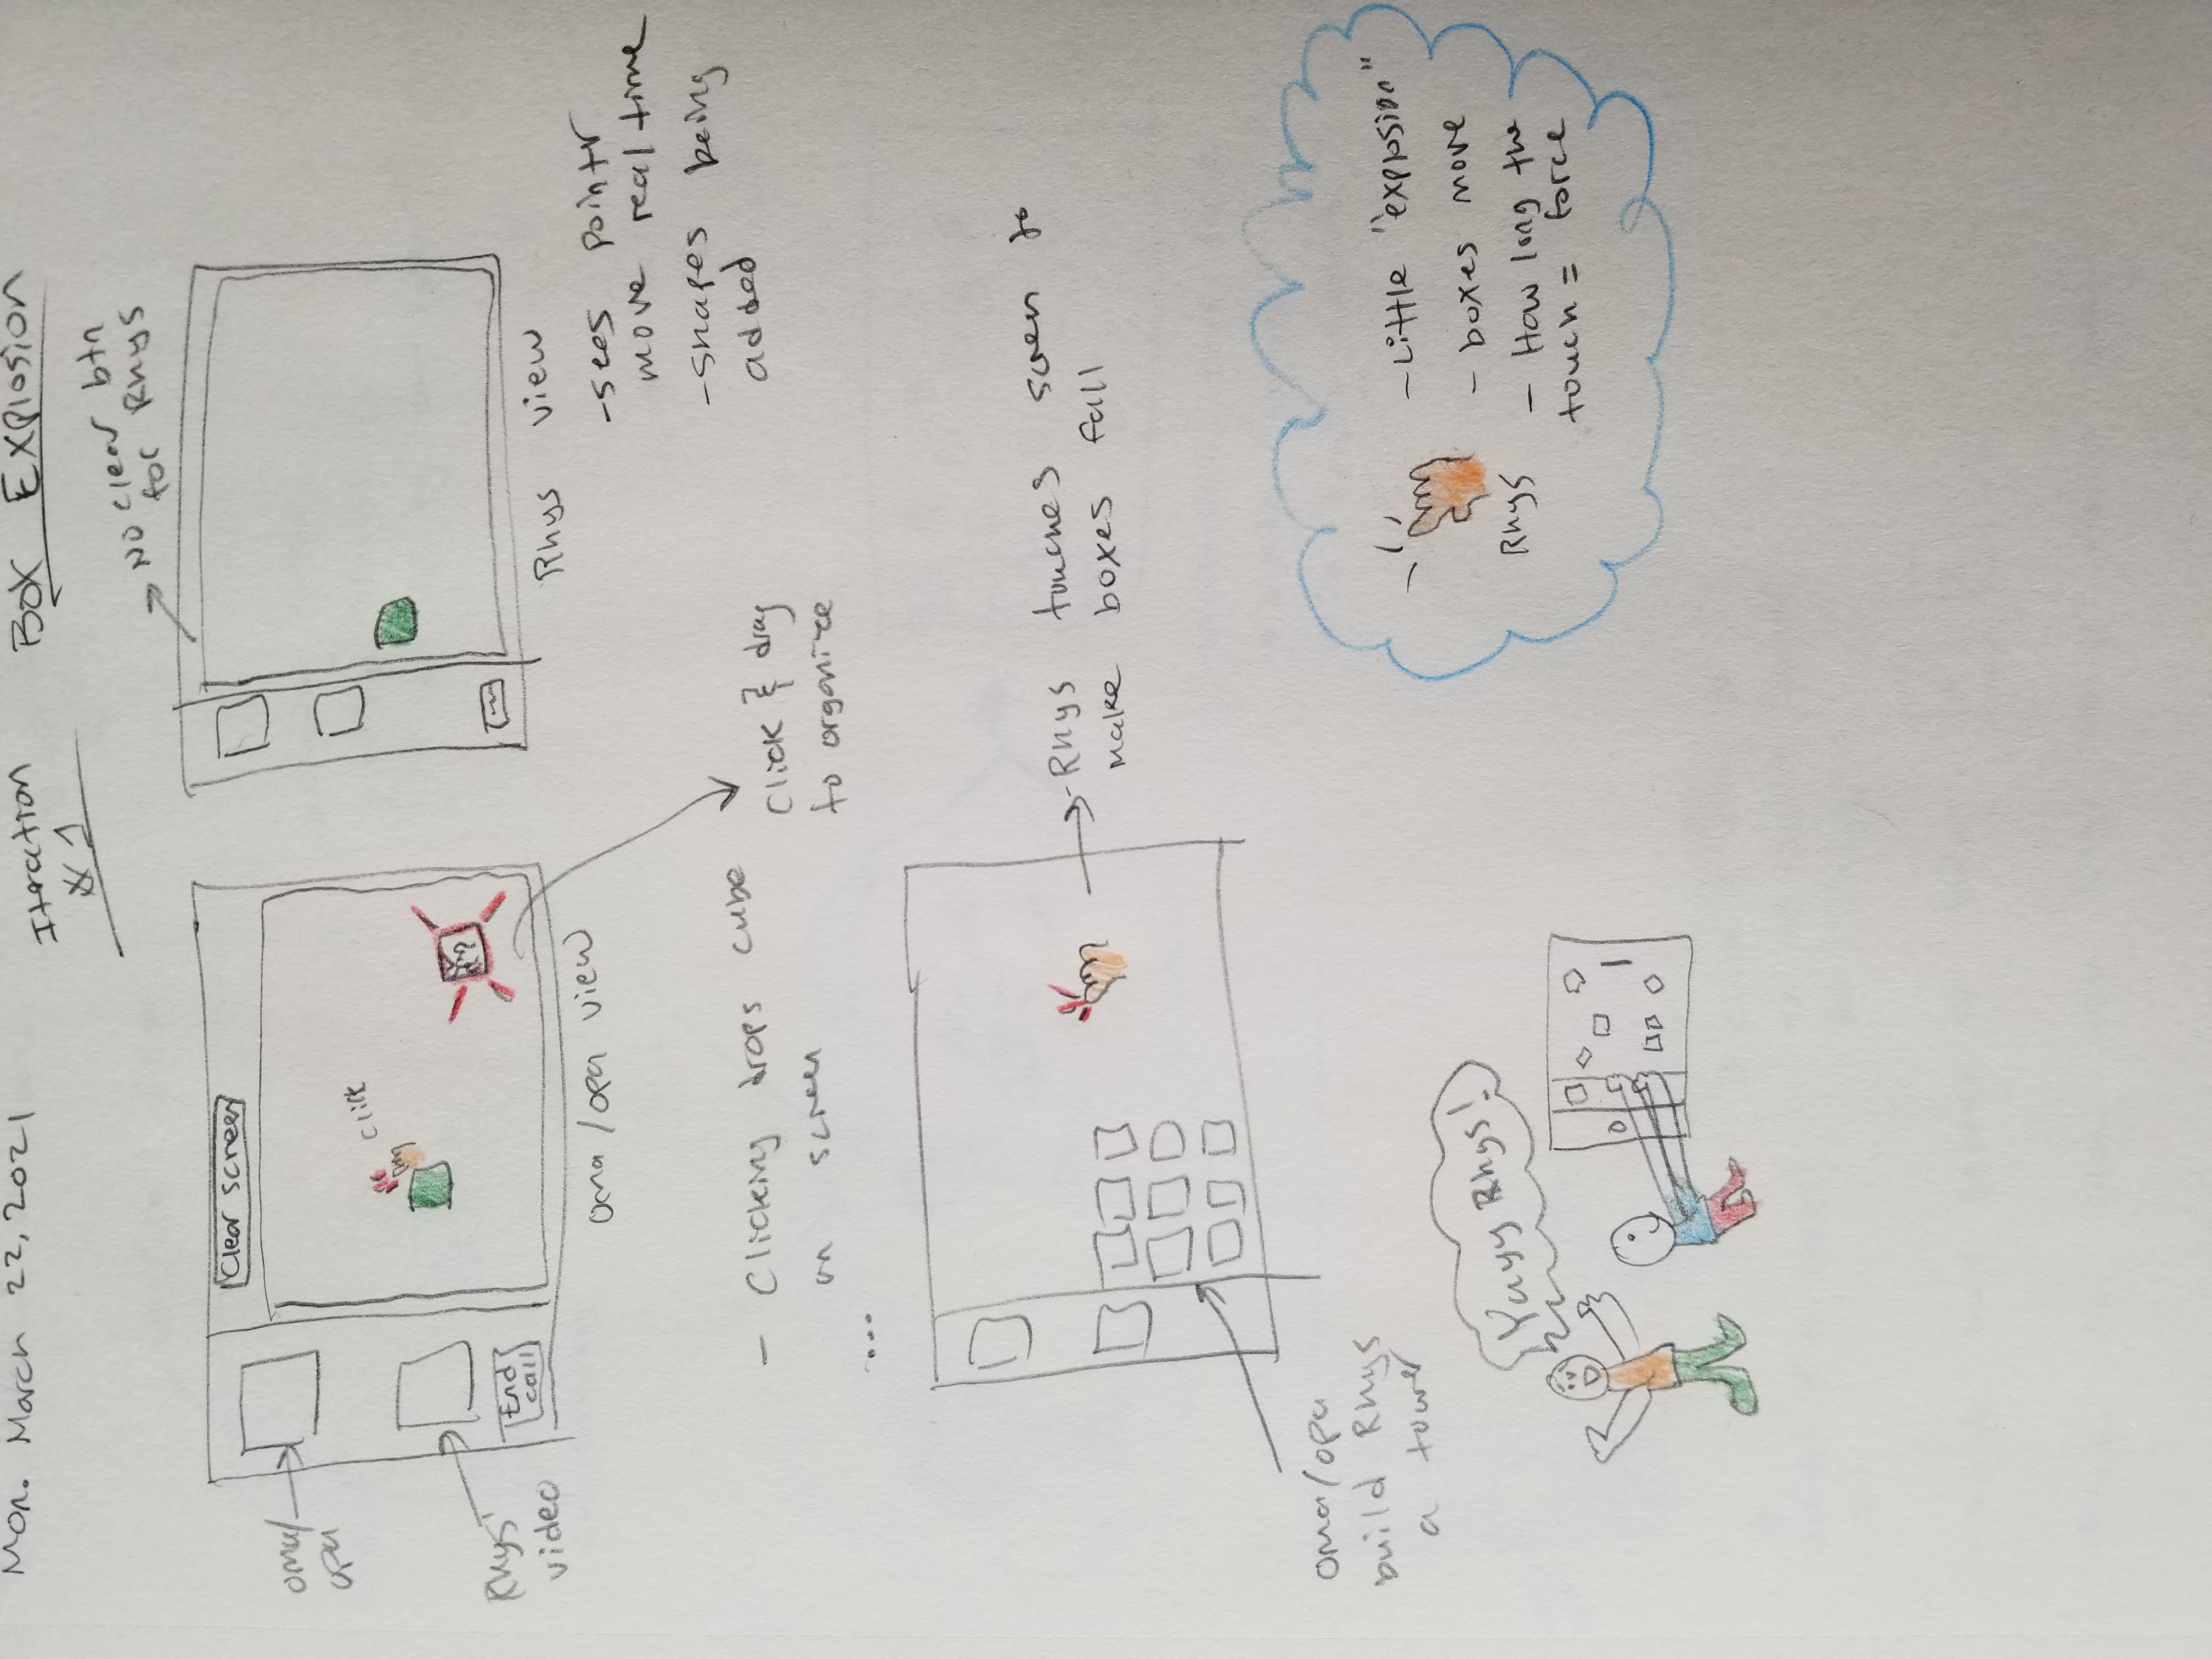 Mon. March 22, 2021
Iteration
#1
Box Explosion
oma/
opa
Rhys'
video
Clear screen
click
End
call
oma/opa view
No clear btn
for Rhys
Rhys view
-sees pointr
move real time
-shapes being
added
- Clicking drops cube
on screen
Click & drag
to organize
...
oma/opa
build Rhys
a tower
-Rhys touches screen to
make boxes fall
Rhys
-Little "explosion"
- boxes move
- How long the
touch = force
Yayy Rhys!